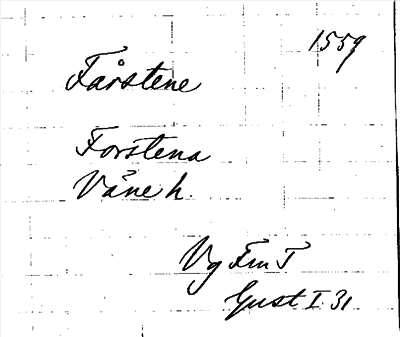 1559
Fårstene
Forstena
Våne h.
Vg Fru T
Gust I. 31